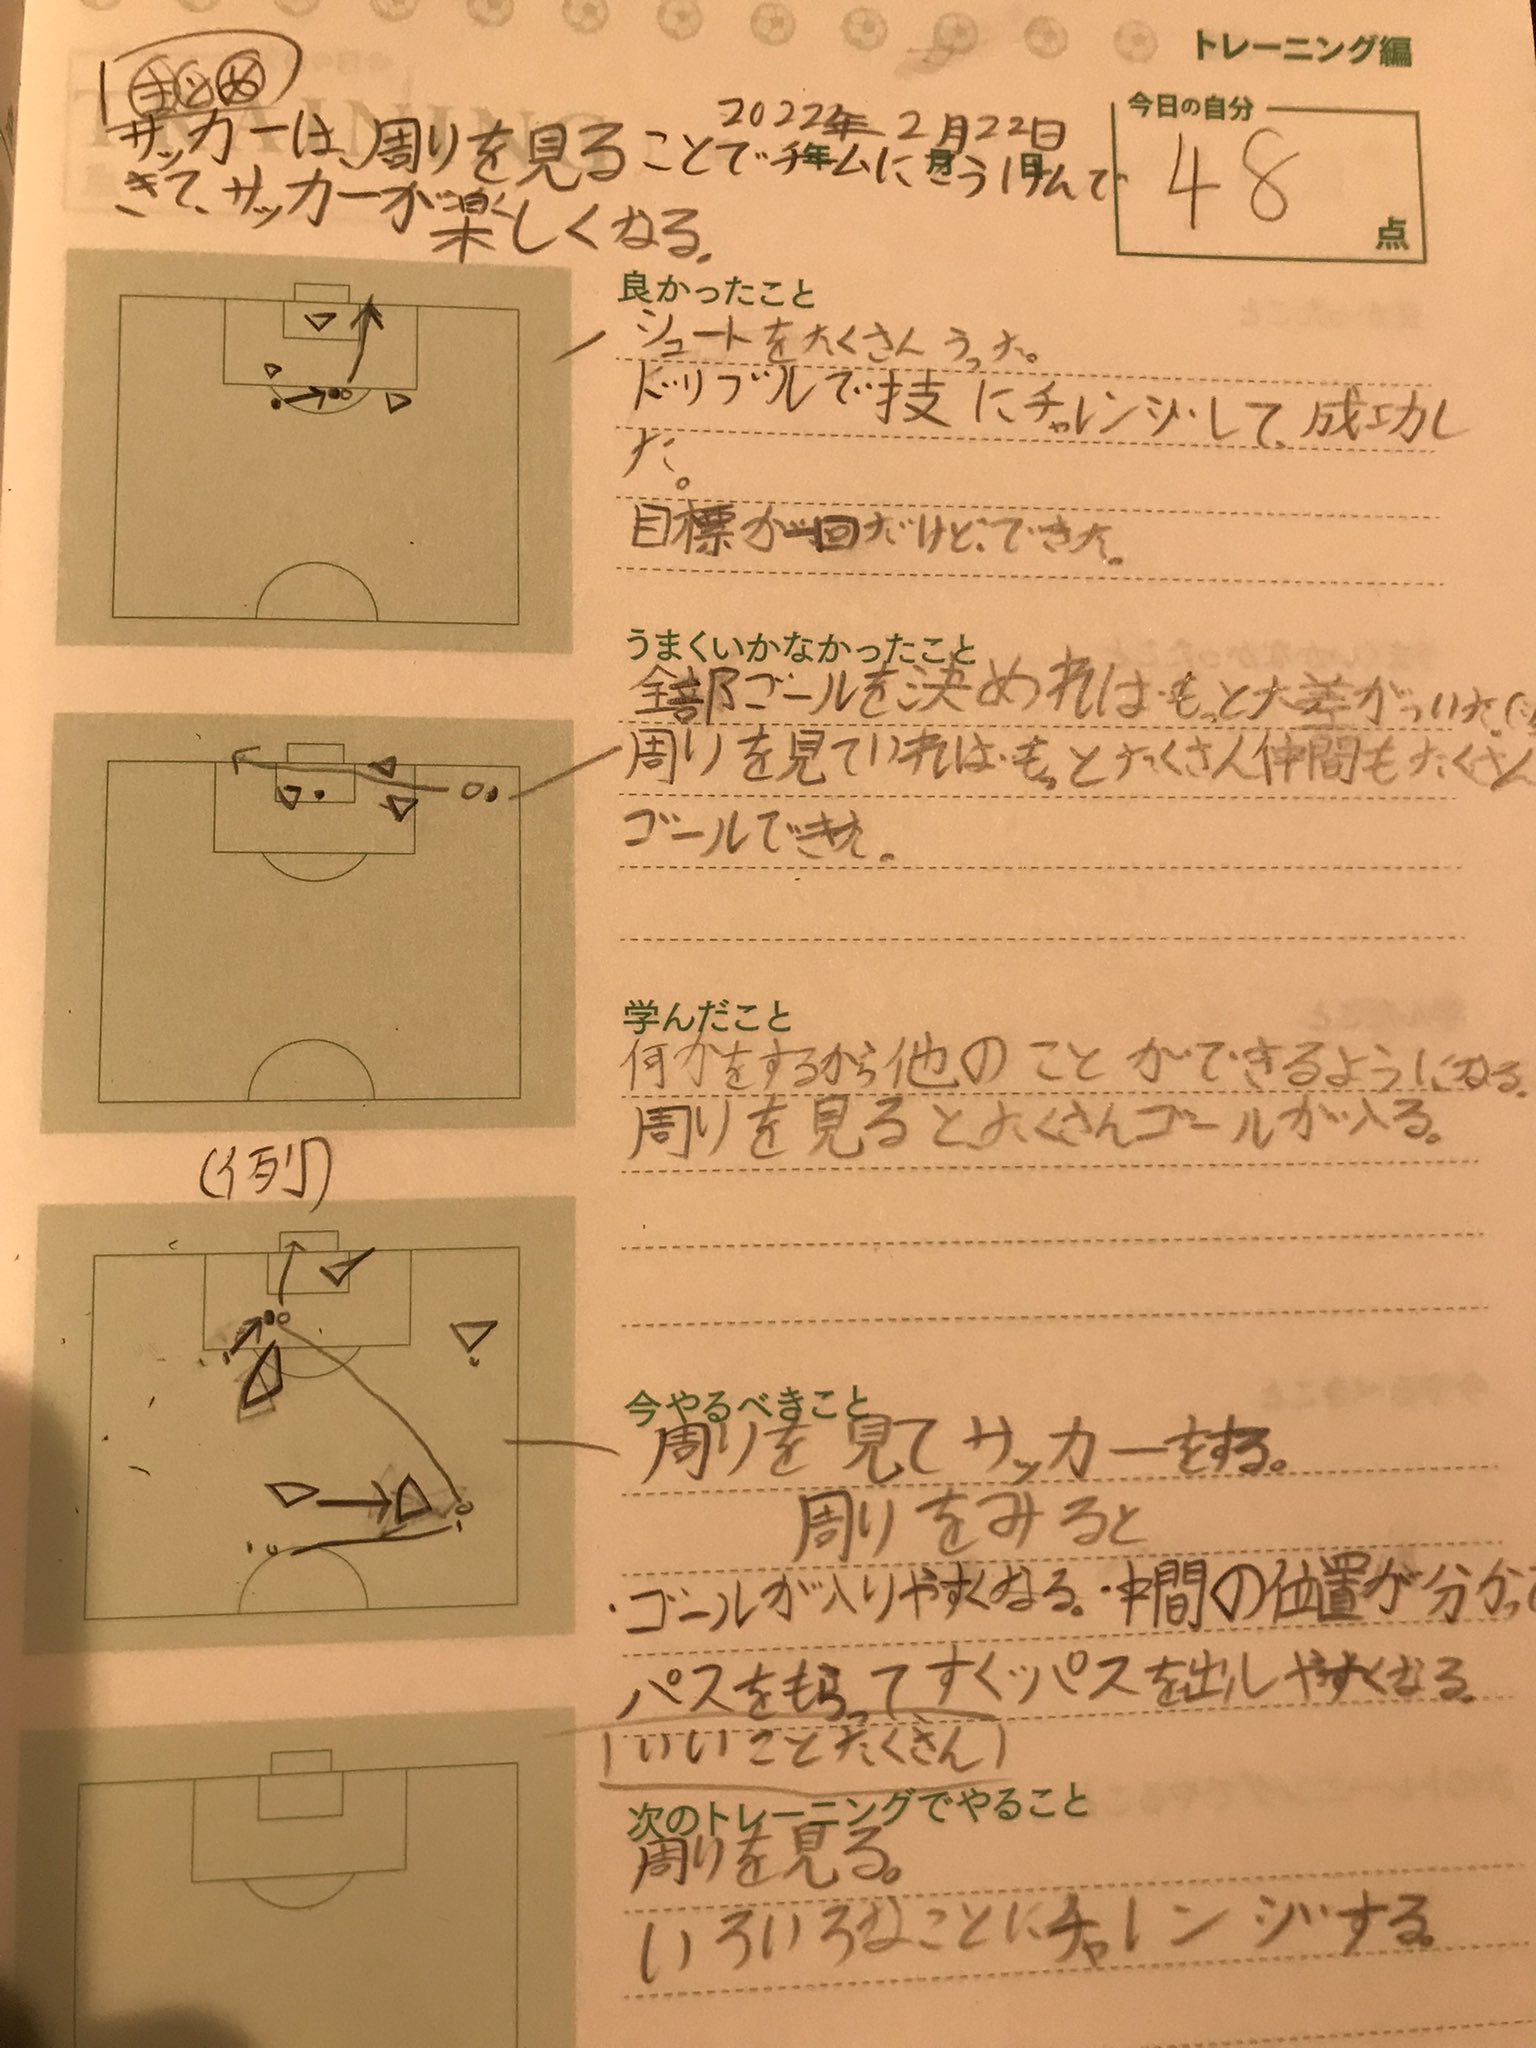 トレーニング編
まとめ
2022年2月22日
年 月 日
今日の自分
48
点
サッカーは、周りを見ることでチームにこうけんで
きて、サッカーが楽しくなる。
良かったこと
シュートをたくさんうった。
ドリブルで技にチャレンジして、成功し
た。
目標が一回だけど、できた。
うまくいかなかったこと
全部ゴールを決めればもっと大差がついた。
周りを見ていればもっとたくさん仲間もたくさん
ゴールできた。
学んだこと
何かをするから他のことができるようになる。
周りを見ると、たくさんゴールが入る。
(例)
今やるべきこと
周りを見てサッカーをする。
周りをみると
・ゴールが入りやすくなる。・仲間の位置が分かって
パスをもらってすぐパスを出しやすくなる。
いいことたくさん
次のトレーニングでやること
周りを見る。
いろいろなことにチャレンジする。